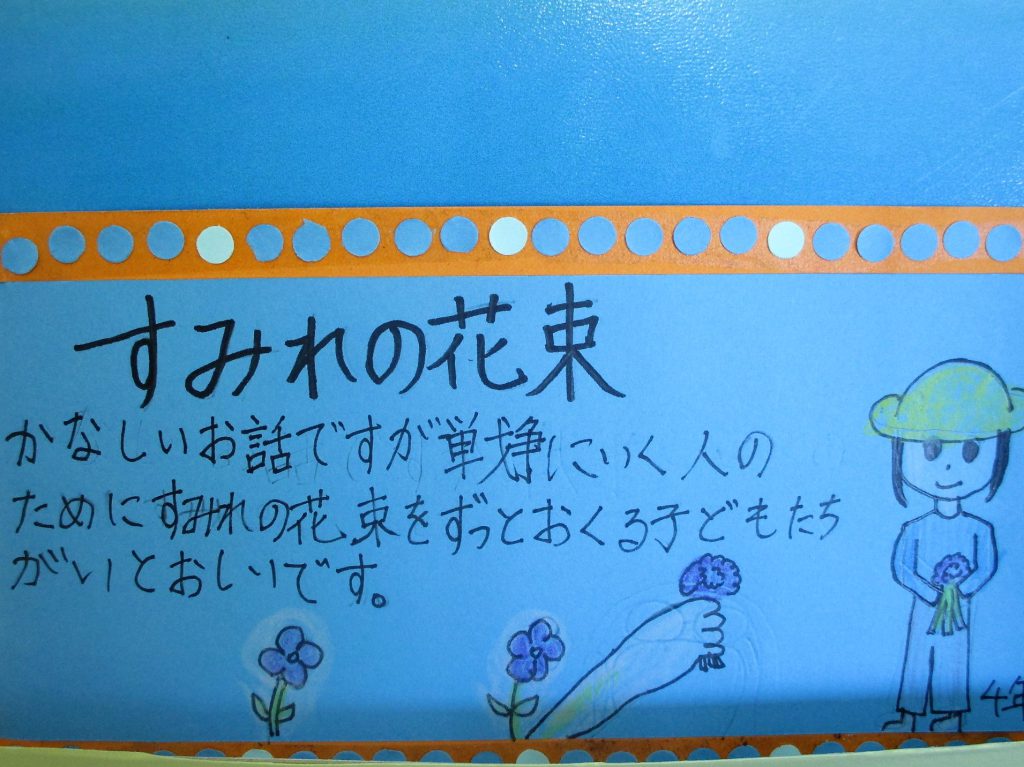 すみれの花束
かなしいお話ですが戦争にいく人の
ためにすみれの花束をずっとおくる子どもたち
がいとおしいです。
4年